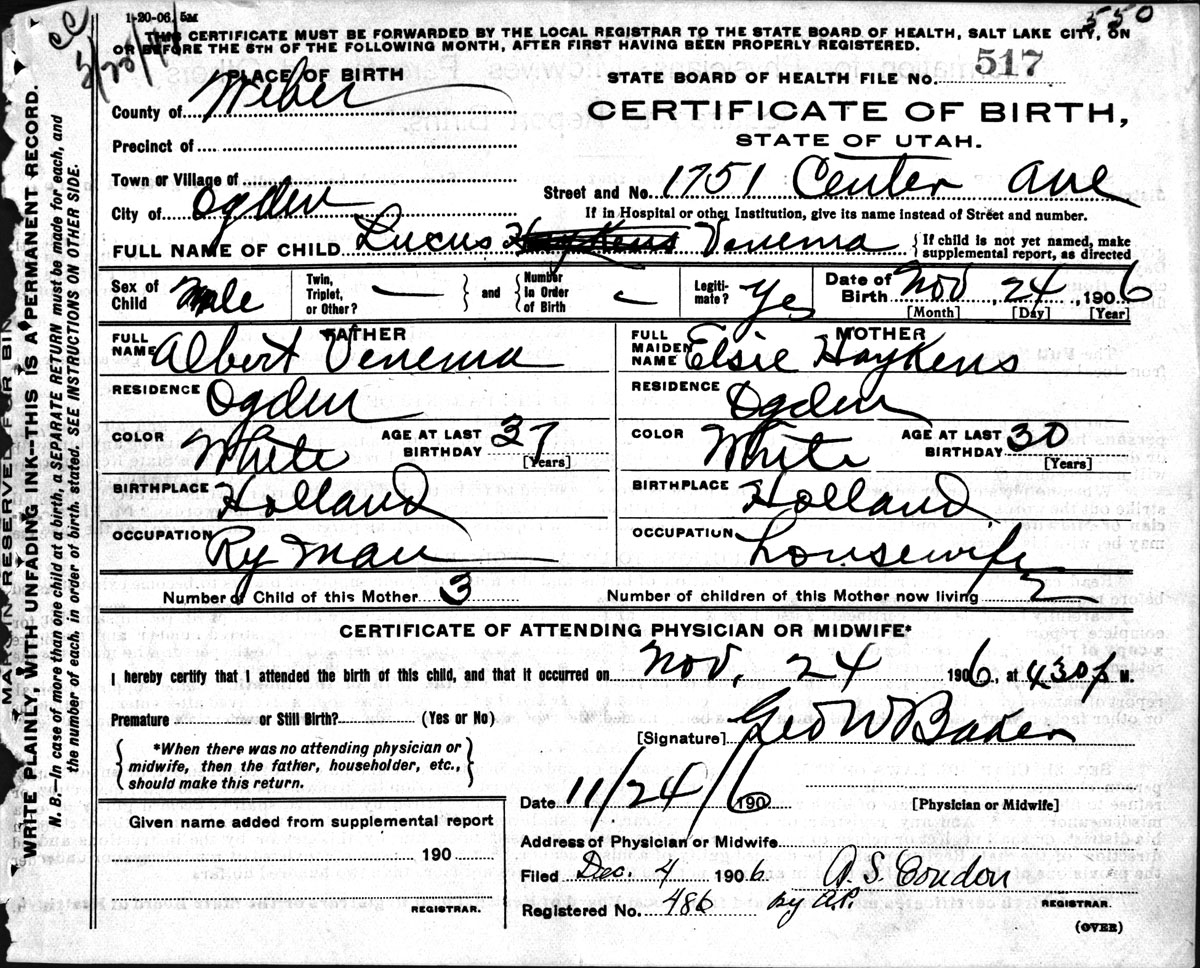 1-20-06. 5M
550
THIS CERTIFICATE MUST BE FORWARDED BY THE LOCAL REGISTRAR TO THE STATE BOARD OF HEALTH, SALT LAKE CITY, ON
OR BEFORE THE 5TH OF THE FOLLOWING MONTH, AFTER FIRST HAVING BEEN PROPERLY REGISTERED.
MARGIN RESERVED FOR BIN
WRITE PLAINLY, WITH UNFADING INK—THIS IS A PERMANENT RECORD.
N. B.—In case of more than one child at a birth, a SEPARATE RETURN must be made for each, and
the number of each, in order of birth, stated. SEE INSTRUCTIONS ON OTHER SIDE.
PLACE OF BIRTH
County of Weber
Precinct of
Town or Village of
City of Ogden
STATE BOARD OF HEALTH FILE NO. 517
CERTIFICATE OF BIRTH,
STATE OF UTAH.
Street and No. 1751 Center Ave
If in Hospital or other Institution, give its name instead of Street and number.
FULL NAME OF CHILD Lucus Haykens Venema { If child is not yet named, make supplemental report, as directed
Sex of Child Male Twin, Triplet, or Other? — } and { Number in Order of Birth — Legitimate? Yes Date of Birth Nov 24, 1906
[Month] [Day] [Year]
FATHER
FULL NAME Albert Venema
RESIDENCE Ogden
COLOR White AGE AT LAST BIRTHDAY 37 [Years]
BIRTHPLACE Holland
OCCUPATION Ry Man
MOTHER
FULL MAIDEN NAME Elsie Haykens
RESIDENCE Ogden
COLOR White AGE AT LAST BIRTHDAY 30 [Years]
BIRTHPLACE Holland
OCCUPATION housewife
Number of Child of this Mother 3 Number of children of this Mother now living 2
CERTIFICATE OF ATTENDING PHYSICIAN OR MIDWIFE*
I hereby certify that I attended the birth of this child, and that it occurred on Nov, 24 1906, at 430 P M.
Premature or Still Birth? (Yes or No)
{ *When there was no attending physician or
midwife, then the father, householder, etc.,
should make this return. }
[Signature] Geo W Baker
Date 11/24/6 190
[Physician or Midwife]
Given name added from supplemental report
190
REGISTRAR.
Address of Physician or Midwife
Filed Dec. 4 1906 A. S. Condon
Registered No. 486 by A.P. REGISTRAR.
(OVER)